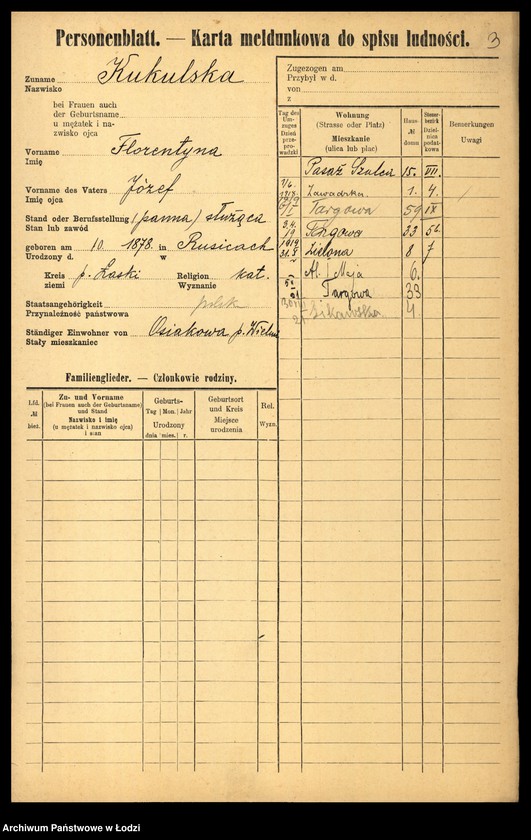 Personenblatt. — Karta meldunkowa do spisu ludności. 3
Zuname Kukulska
Nazwisko
bei Frauen auch
der Geburtsname
u mężatek i na-
zwisko ojca
Vorname Florentyna
Imię
Vorname des Vaters Józef
Imię ojca
Stand oder Berufsstellung (panna) służąca
Stan lub zawód
geboren am 10. 1878. in Rusicach
Urodzony d. w
Kreis p. Łaski Religion kat.
ziemi Wyznanie
Staatsangehörigkeit polsk
Przynależność państwowa
Ständiger Einwohner von Osiakowa p. Wieluń
Stały mieszkaniec
Familienglieder. — Członkowie rodziny.
Lfd. № bież.
Zu- und Vorname
(bei Frauen auch der Geburtsname)
und Stand
Nazwisko i imię
(u mężatek i nazwisko ojca)
i stan
Geburts-
Tag Mon. Jahr
Urodzony
dnia mies. r.
Geburtsort
und Kreis
Miejsce
urodzenia
Rel.
Wyzn.
Zugezogen am
Przybył w d.
von
z
Tag des Um-
zuges
Dzień
prze-
prowadzki
Wohnung
(Strasse oder Platz)
Mieszkanie
(ulica lub plac)
Haus-
№
domu
Steuer-
bezirk
Dziel-
nica
podat-
kowa
Bemerkungen
Uwagi
Pasaż Szulca 15. VII.
Zawadzka 1. 4.
Targowa 59 IX
Targowa 33
Zielona 8 7
Al. 1 Maja 6.
Targowa 33
4
Archiwum Państwowe w Łodzi